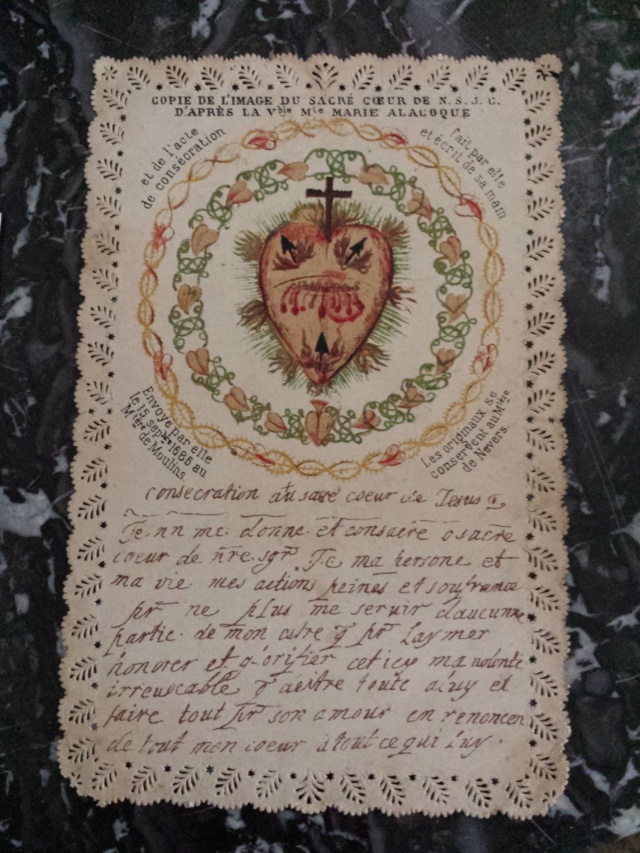 COPIE DE L'IMAGE DU SACRÉ CŒUR DE N. S. J. C.
D'APRÈS LA Vble Mte MARIE ALACOQUE
et de l'acte
de consécration
fait par elle
et écrit de sa main
Envoyé par elle
le 15 septre 1686 au
Mtère de Moulins.
Les originaux se
conservent au Mtère
de Nevers.
consecration au sacré coeur de Jesus
Je nn me donne et consacre o sacre
coeur de nre sgr J c ma persone et
ma vie mes actions peines et soufrance
pr ne plus me seruir d'aucunne
partie de mon estre q pr Laymer
honorer et glorifier cet icy ma uolonte
irreuocable d'aestre toute a luy et
faire tout pr son amour en renoncen
de tout mon coeur a tout ce qui luy